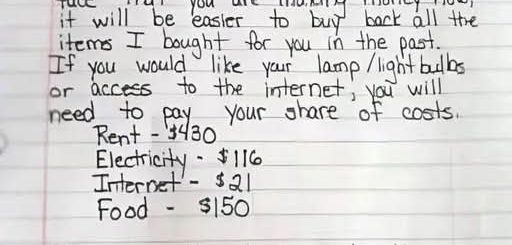 it will be easier to buy back all the
items I bought for you in the past.
If you would like your lamp/light bulbs
or access to the internet, you will
need to pay your share of costs.
Rent - $430
Electricity - $116
Internet - $21
Food - $150